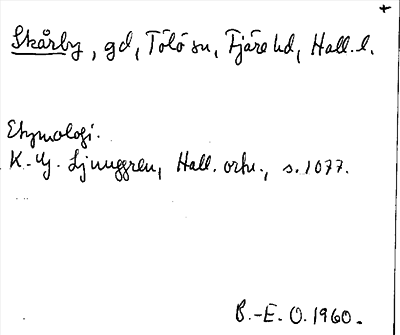 +
Skårby, gd, Tölö sn, Fjäre hd, Hall. l.
Etymologi.
K.-G. Ljunggren, Hall. ortn., s. 1077.
B.-E. O. 1960.